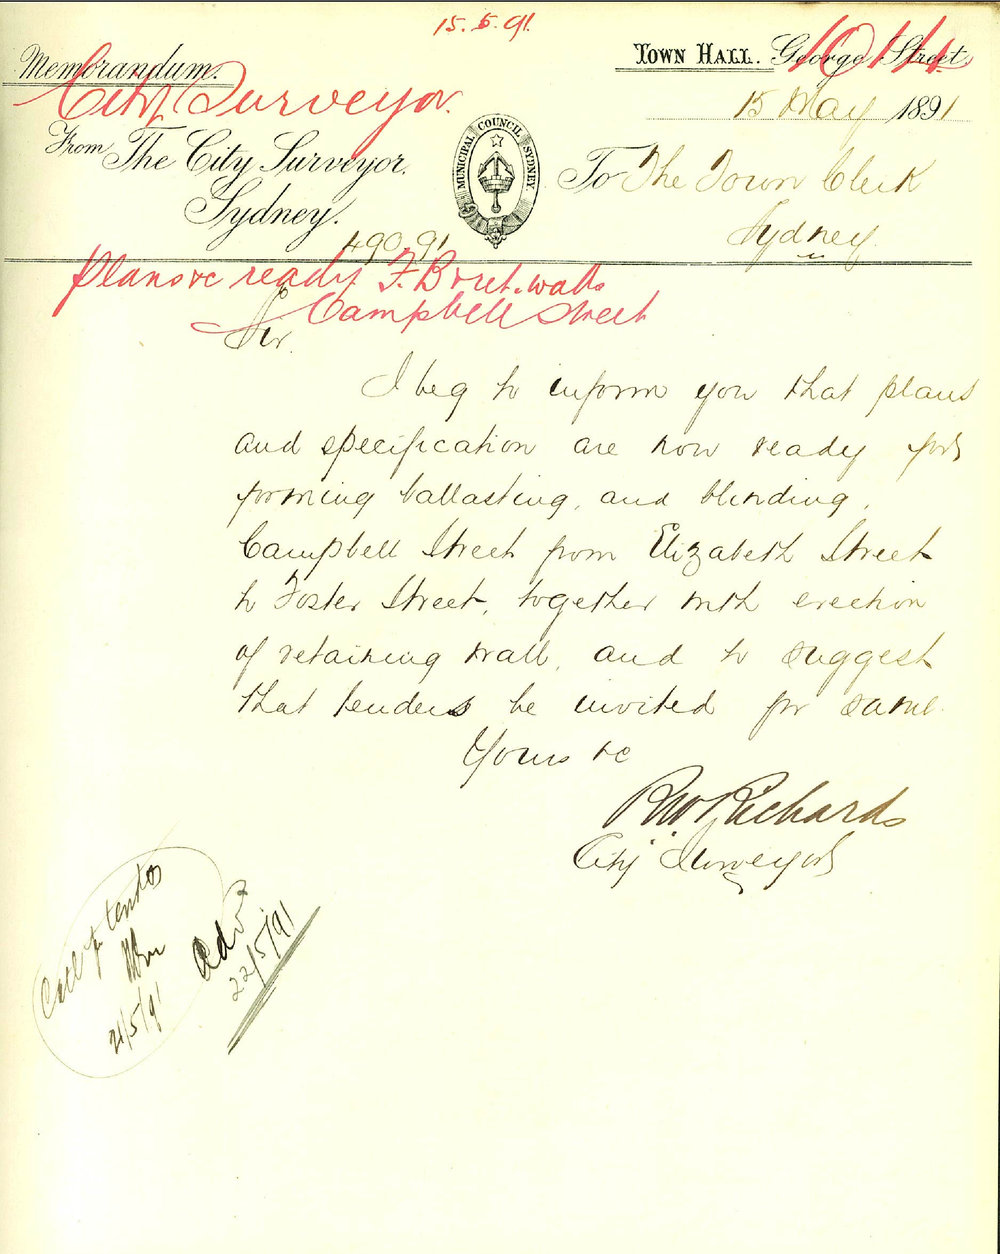 15.5.91.
Memorandum.
TOWN HALL. George Street,
1011
City Surveyor
15 May 1891
From The City Surveyor,
Sydney.
MUNICIPAL COUNCIL SYDNEY
To The Town Clerk
Sydney.
490.91
Plans &c ready F. B & ret. walls
Campbell Street
Sir
I beg to inform you that plans
and specification are now ready for
forming ballasting, and blinding,
Campbell Street from Elizabeth Street
to Foster Street, together with erection
of retaining wall, and to suggest
that tenders be invited for same.
Yours &c
RW Richards
City Surveyor
Call for tenders
21/5/91
Adv
22/5/91